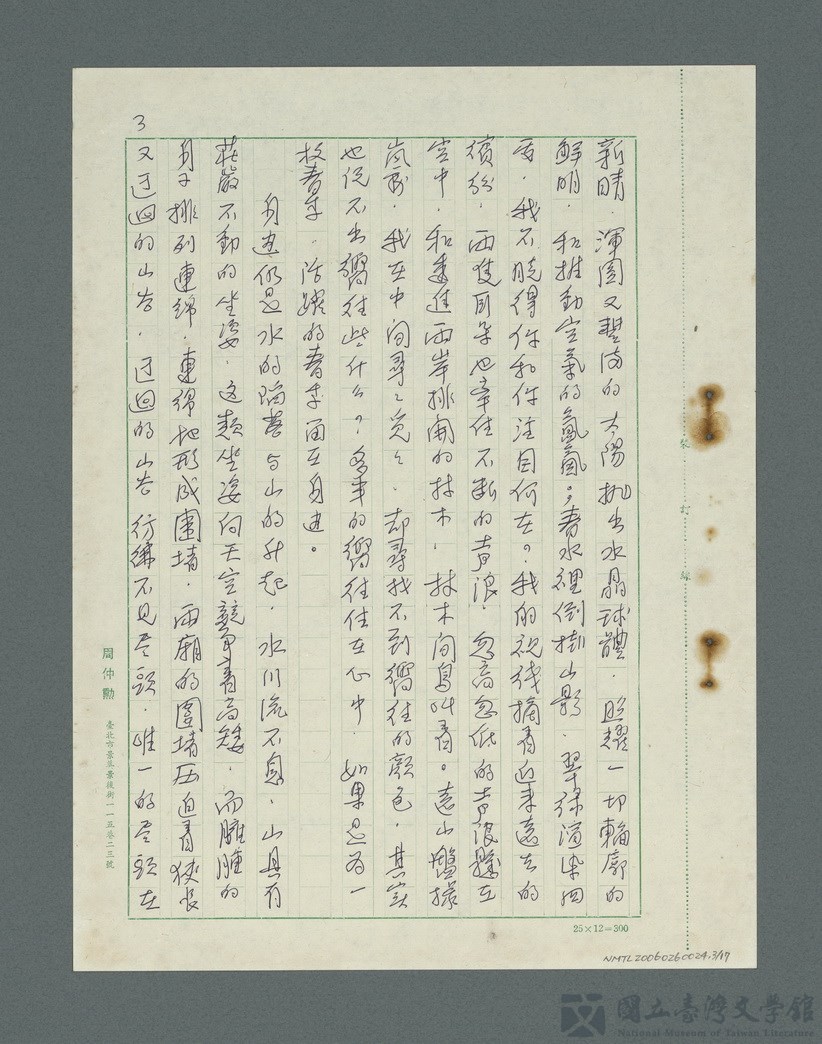 3
新晴．渾圓又豐滿的太陽拋出水晶球體．照耀一切輪廓的
鮮明．和推動空氣的氤氳。春水裡倒掛山影．翠綠渲染四
我不曉得你和你注目何在？我的視線摘青近來遠去的
繽紛．兩隻耳朵也牽住不斷的声浪．忽高忽低的声浪懸在
空中．和垂進兩岸排開的林木．林木间鳥叫着。遠山
我在中间尋々覓々．却尋找不到嚮往的顏色．其实
也说不出嚮往些什么？多年的嚮往住在心中．如果是为一
枚春字．活躍的春字面在身边。
身边仍是水的陷落与山的升起．水川流不息．山具有
莊嚴不動的坐姿．这類坐姿向天空競争着高矮．而臃腫的
身子排列連綿．連綿地形成圍墙．兩廂的圍墙压迫着狹長
又迂迴的山谷．迂迴的山谷彷彿不见尽頭．唯一的尽頭在
周仲勳
臺北市景美景後街一一五巷二三號
裝 訂 線
25×12=300
NMTL20060260024.3/17
國立臺灣文學館
National Museum of Taiwan Literature